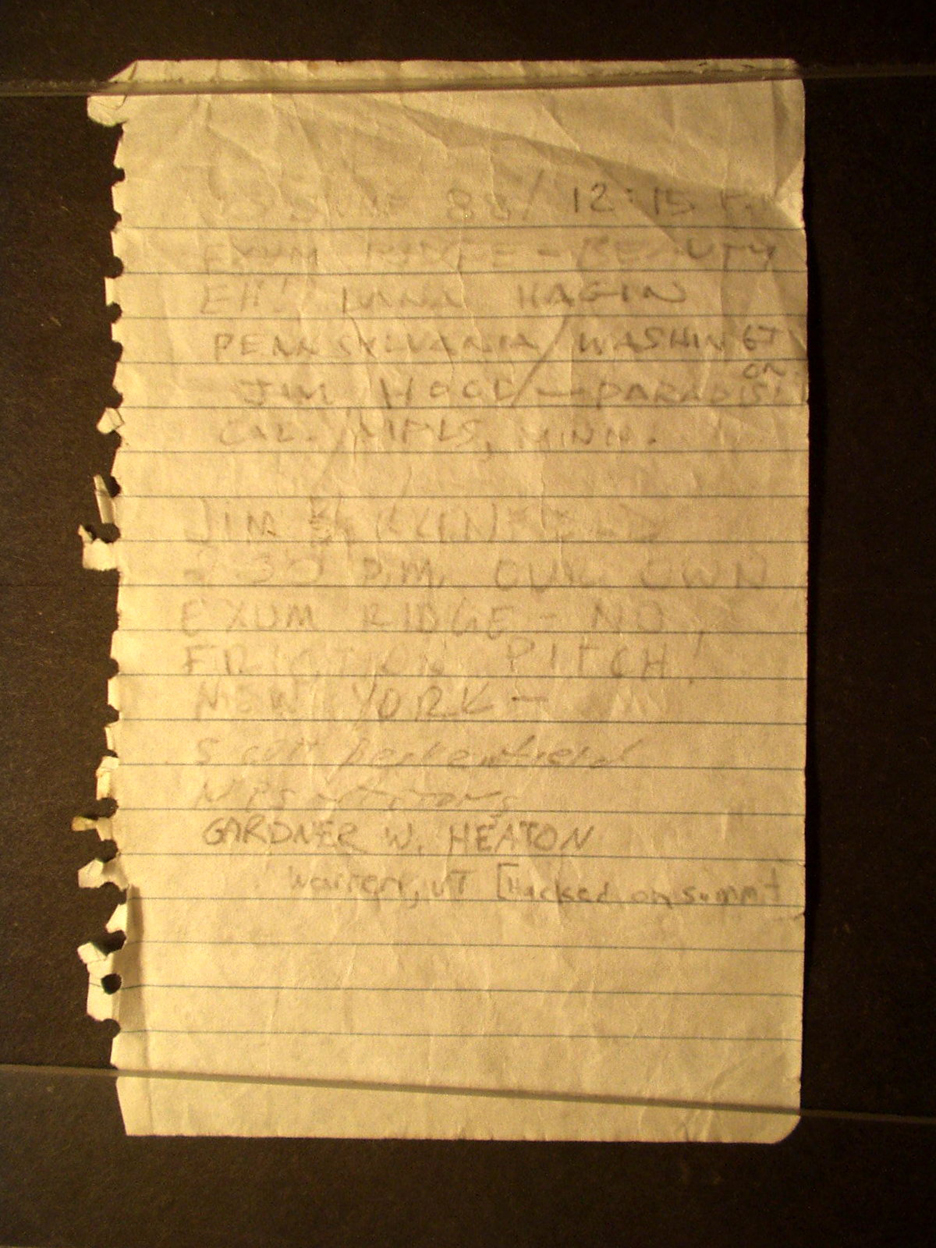 JUNE 88/ 12:15 P.M
EXUM RIDGE - BEAUTY
EH! DANA HAGIN
PENNSYLVANIA / WASHINGTON
JIM HOOD / - PARADISE
CAL. / MPLS, MINN.
JIM
P.M. OUR OWN
EXUM RIDGE - NO
FRICTION PITCH!
NEW YORK -
Scott
GARDNER W. HEATON
Warren, UT [Hacked on summit